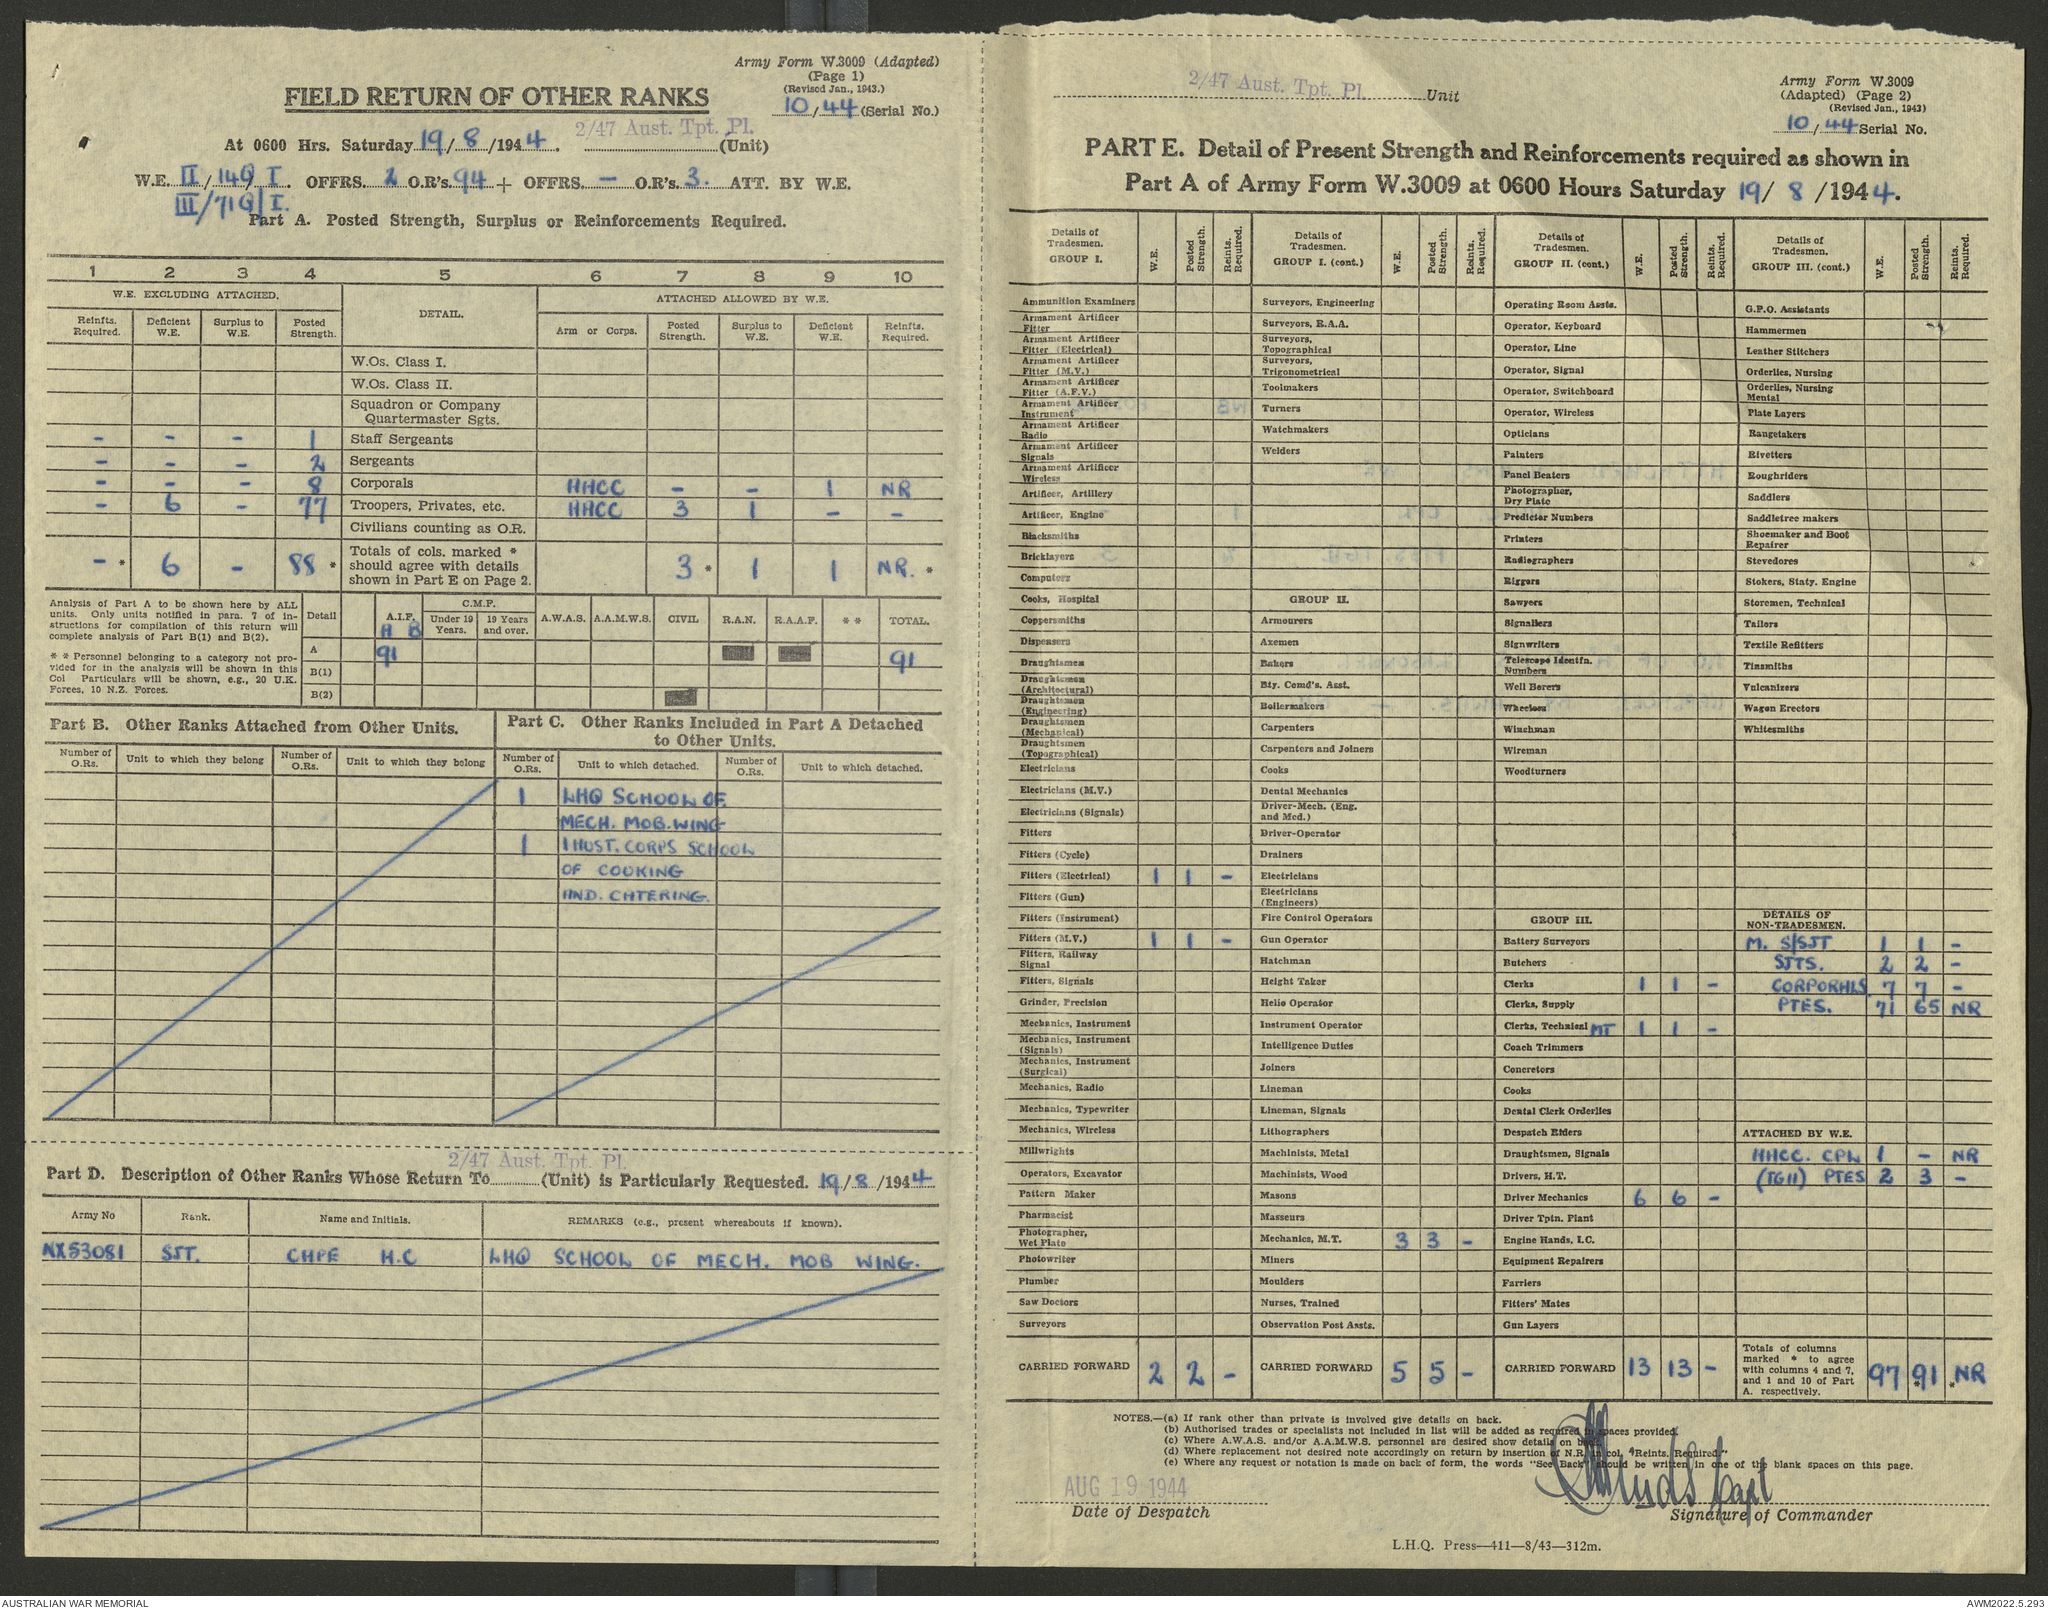 Army Form W.3009 (Adapted)
(Page 1)
(Revised Jan., 1943.)
10/44 (Serial No.)
FIELD RETURN OF OTHER RANKS
2/47 Aust. Tpt. Pl.
At 0600 Hrs. Saturday 19/8/1944. (Unit)
W.E. II/14Q/I. OFFRS. 2 O.R's. 94 + OFFRS. – O.R's. 3. ATT. BY W.E.
III/71Q/I.
Part A. Posted Strength, Surplus or Reinforcements Required.
1 2 3 4 5 6 7 8 9 10
W.E. EXCLUDING ATTACHED. DETAIL. ATTACHED ALLOWED BY W.E.
Reinfts. Required. Deficient W.E. Surplus to W.E. Posted Strength. Arm or Corps. Posted Strength. Surplus to W.E. Deficient W.E. Reinfts. Required.
W.Os. Class I.
W.Os. Class II.
Squadron or Company
Quartermaster Sgts.
– – – 1 Staff Sergeants
– – – 2 Sergeants
– – – 8 Corporals AACC – – 1 NR
– 6 – 77 Troopers, Privates, etc. AACC 3 1 – –
Civilians counting as O.R.
– * 6 – 88 * Totals of cols. marked * should agree with details shown in Part E on Page 2. 3 * 1 1 NR. *
Analysis of Part A to be shown here by ALL
units. Only units notified in para. 7 of in-
structions for compilation of this return will
complete analysis of Part B(1) and B(2).
* * Personnel belonging to a category not pro-
vided for in the analysis will be shown in this
Col Particulars will be shown, e.g., 20 U.K.
Forces, 10 N.Z. Forces.
Detail A.I.F. C.M.F. Under 19 Years. 19 Years and over. A.W.A.S. A.A.M.W.S. CIVIL R.A.N. R.A.A.F. * * TOTAL.
A B
A 91 91
B(1)
B(2)
Part B. Other Ranks Attached from Other Units.
Number of O.Rs. Unit to which they belong Number of O.Rs. Unit to which they belong
Part C. Other Ranks Included in Part A Detached
to Other Units.
Number of O.Rs. Unit to which detached. Number of O.Rs. Unit to which detached.
1 LHQ SCHOOL OF
MECH. MOB. WING
1 1 AUST. CORPS SCHOOL
OF COOKING
AND. CATERING.
2/47 Aust. Tpt. Pl.
Part D. Description of Other Ranks Whose Return To (Unit) is Particularly Requested. 19/8/1944
Army No Rank. Name and Initials. REMARKS (e.g., present whereabouts if known).
NX53081 SJT. CAPE H.C LHQ SCHOOL OF MECH. MOB WING.
2/47 Aust. Tpt. Pl. Unit
Army Form W.3009
(Adapted) (Page 2)
(Revised Jan., 1943)
10/44 Serial No.
PART E. Detail of Present Strength and Reinforcements required as shown in
Part A of Army Form W.3009 at 0600 Hours Saturday 19/8/1944.
Details of Tradesmen. GROUP I. W.E. Posted Strength. Reints. Required.
Ammunition Examiners
Armament Artificer Fitter
Armament Artificer Fitter (Electrical)
Armament Artificer Fitter (M.V.)
Armament Artificer Fitter (A.F.V.)
Armament Artificer Instrument
Armament Artificer Radio
Armament Artificer Signals
Armament Artificer Wireless
Artificer, Artillery
Artificer, Engine
Blacksmiths
Bricklayers
Computers
Cooks, Hospital
Coppersmiths
Dispensers
Draughtsmen
Draughtsmen (Architectural)
Draughtsmen (Engineering)
Draughtsmen (Mechanical)
Draughtsmen (Topographical)
Electricians
Electricians (M.V.)
Electricians (Signals)
Fitters
Fitters (Cycle)
Fitters (Electrical) 1 1 –
Fitters (Gun)
Fitters (Instrument)
Fitters (M.V.) 1 1 –
Fitters, Railway Signal
Fitters, Signals
Grinder, Precision
Mechanics, Instrument
Mechanics, Instrument (Signals)
Mechanics, Instrument (Surgical)
Mechanics, Radio
Mechanics, Typewriter
Mechanics, Wireless
Millwrights
Operators, Excavator
Pattern Maker
Pharmacist
Photographer, Wet Plate
Photowriter
Plumber
Saw Doctors
Surveyors
CARRIED FORWARD 2 2 –
Details of Tradesmen. GROUP I. (cont.) W.E. Posted Strength. Reints. Required.
Surveyors, Engineering
Surveyors, R.A.A.
Surveyors, Topographical
Surveyors, Trigonometrical
Toolmakers
Turners
Watchmakers
Welders
GROUP II.
Armourers
Axemen
Bakers
Bty. Comd's. Asst.
Boilermakers
Carpenters
Carpenters and Joiners
Cooks
Dental Mechanics
Driver-Mech. (Eng. and Med.)
Driver-Operator
Drainers
Electricians
Electricians (Engineers)
Fire Control Operators
Gun Operator
Hatchman
Height Taker
Helio Operator
Instrument Operator
Intelligence Duties
Joiners
Lineman
Lineman, Signals
Lithographers
Machinists, Metal
Machinists, Wood
Masons
Masseurs
Mechanics, M.T. 3 3 –
Miners
Moulders
Nurses, Trained
Observation Post Assts.
CARRIED FORWARD 5 5 –
Details of Tradesmen. GROUP II. (cont.) W.E. Posted Strength. Reints. Required.
Operating Room Assts.
Operator, Keyboard
Operator, Line
Operator, Signal
Operator, Switchboard
Operator, Wireless
Opticians
Painters
Panel Beaters
Photographer, Dry Plate
Predictor Numbers
Printers
Radiographers
Riggers
Sawyers
Signallers
Signwriters
Telescope Identfn. Numbers
Well Borers
Wheelers
Winchman
Wireman
Woodturners
GROUP III.
Battery Surveyors
Butchers
Clerks 1 1 –
Clerks, Supply
Clerks, Technical MT 1 1 –
Coach Trimmers
Concretors
Cooks
Dental Clerk Orderlies
Despatch Riders
Draughtsmen, Signals
Drivers, H.T.
Driver Mechanics 6 6 –
Driver Tptn. Plant
Engine Hands, I.C.
Equipment Repairers
Farriers
Fitters' Mates
Gun Layers
CARRIED FORWARD 13 13 –
Details of Tradesmen. GROUP III. (cont.) W.E. Posted Strength. Reints. Required.
G.P.O. Assistants
Hammermen
Leather Stitchers
Orderlies, Nursing
Orderlies, Nursing Mental
Plate Layers
Rangetakers
Rivetters
Roughriders
Saddlers
Saddletree makers
Shoemaker and Boot Repairer
Stevedores
Stokers, Staty. Engine
Storemen, Technical
Tailors
Textile Refitters
Tinsmiths
Vulcanizers
Wagon Erectors
Whitesmiths
DETAILS OF
NON-TRADESMEN.
M. S/SJT 1 1 –
SJTS. 2 2 –
CORPORALS 7 7 –
PTES. 71 65 NR
ATTACHED BY W.E.
AACC. CPL 1 – NR
(TGII) PTES 2 3 –
Totals of columns marked * to agree with columns 4 and 7, and 1 and 10 of Part A. respectively. 97 91 * NR *
NOTES.—(a) If rank other than private is involved give details on back.
(b) Authorised trades or specialists not included in list will be added as required in spaces provided.
(c) Where A.W.A.S. and/or A.A.M.W.S. personnel are desired show details on back.
(d) Where replacement not desired note accordingly on return by insertion of N.R. in col. "Reints. Required."
(e) Where any request or notation is made on back of form, the words "See Back" should be written in one of the blank spaces on this page.
AUG 19 1944
Date of Despatch
Capt
Signature of Commander
L.H.Q. Press—411—8/43—312m.
AUSTRALIAN WAR MEMORIAL
AWM2022.5.293